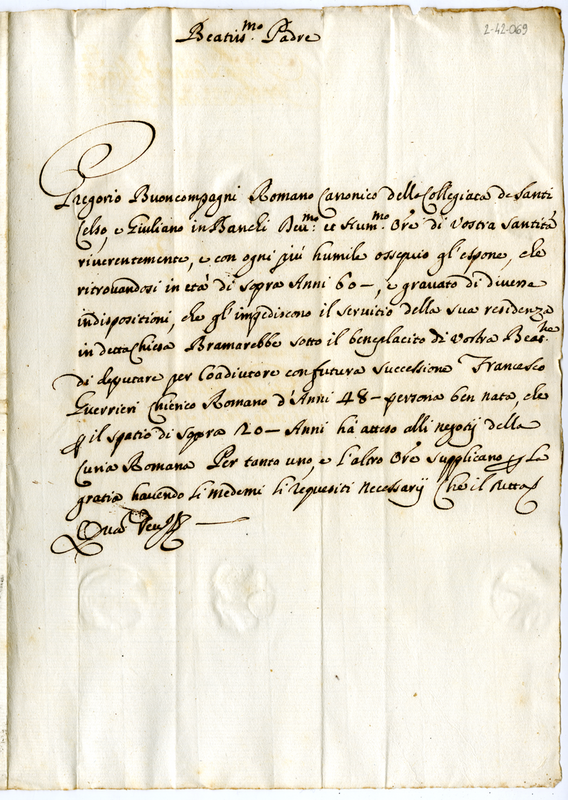 2-42-069
Beatiss.mo Padre
Gregorio Buoncompagni Romano Canonico della Collegiata de Santi
Celso, e Giuliano in Banchi Dev.mo: et Hum.mo Ore di Vostra Santità
riverentemente, e con ogni più humile ossequio gl'espone, che
ritrovandosi in età di sopra Anni 60 –, e gravato di diverse
indispositioni, che gl'impediscono il servitio della sua residenza
in detta Chiesa Bramarebbe sotto il beneplacito di Vostra Beat.ne
di deputare per Coadiutore con futura successione Francesco
Guerrieri Chierico Romano d'Anni 48 – persona ben nata, che
p il spatio di sopra 20 – Anni hà atteso alli negotij della
Curia Romana Per tanto uno, e l'altro Ore supplicano p la
gratia havendo li medemi li requisiti necessarij Che il tutto
Quas Deus